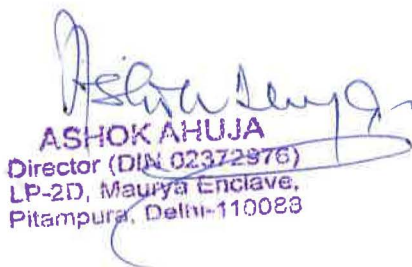 Ashok Ahuja
ASHOK AHUJA
Director (DIN 02372976)
LP-2D, Maurya Enclave,
Pitampura, Delhi-110088